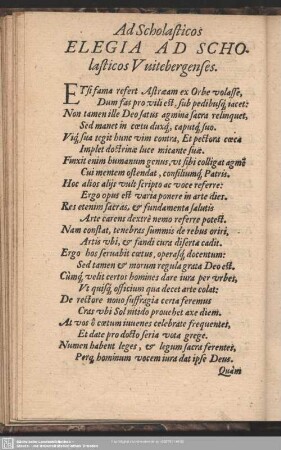 Ad Scholasticos
ELEGIA AD SCHO-
lasticos Vuitebergenses.
ETsi fama refert Astræam ex Orbe volasse,
Dum fas pro vili est, sub pedibusq́; iacet:
Non tamen ille Deo satus agmina sacra relinquet,
Sed manet in cœtu duxq́, caputq́; suo.
Vsq́; sua tegit hunc vim contra, Et pectora cœca
Implet doctrinæ luce micante suæ.
Finxit enim humanum genus, vt sibi colligat agmẽ
Cui mentem ostendat, consiliumq́; Patris.
Hoc alios alijs vult scripto ac voce referre:
Ergo opus est varia ponere in arte dies.
Res etenim sacras, & fundamenta salutis
Arte carens dextrè nemo referre potest.
Nam constat, tenebras summis de rebus oriri,
Artis vbi, & fandi cura diserta cadit.
Ergo hos seruabit cœtus, operasq́; docentum:
Sed tamen & morum regula grata Deo est.
Cùmq́; velit certos homines dare iura per vrbes,
Vt quisq́; officium qua decet arte colat:
De rectore nouo suffragia certa feremus
Cras vbi Sol nitido prouehet axe diem.
At vos ô cœtum iuuenes celebrate frequentes,
Et date pro docto seria vota grege.
Numen habent leges, & legum sacra ferentes,
Perq́; hominum vocem iura dat ipse Deus.
Quàm